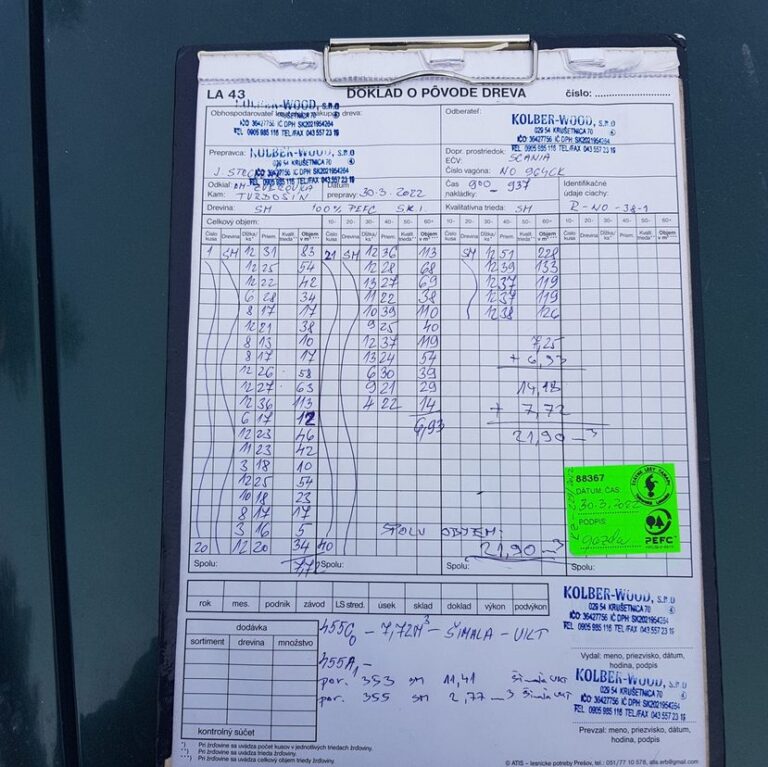 LA 43 DOKLAD O PÔVODE DREVA číslo:
KOLBER-WOOD, s.r.o
Obhospodarovateľ
029 54 KRUŠETNICA 70
IČO: 36427756 IČ DPH: SK2021954264
TEL. 0905 985 116 TEL/FAX 043 557 23 19
Odberateľ:
KOLBER-WOOD, s.r.o
029 54 KRUŠETNICA 70
IČO: 36427756 IČ DPH: SK2021954264
TEL. 0905 985 116 TEL/FAX 043 557 23 19
Prepravca:
KOLBER-WOOD, s.r.o
029 54 KRUŠETNICA 70
IČO: 36427756 IČ DPH: SK2021954264
TEL. 0905 985 116 TEL/FAX 043 557 23 19
Dopr. prostriedok: SCANIA
EČV:
Číslo vagóna: NO 964CK
Odkiaľ:
Kam: TVRDOŠÍN
Dátum prepravy: 30.3.2022
Čas nakládky: 900 - 937
Identifikačné údaje ciachy:
R-NO-38-1
Drevina: SM 100% PEFC SKI
Kvalitatívna trieda: SM
Celkový objem: 10- 20- 30- 40- 50- 60+ 10- 20- 30- 40- 50- 60+ 10- 20- 30- 40- 50- 60+
Číslo kusa Drevina Dĺžka/ks Priem. Kvalit. trieda Objem v m³
1 SM 12 31 83 21 SM 12 36 113 SM 12 51 228
12 25 54 12 28 68 12 39 133
12 22 42 13 27 69 12 37 119
6 28 34 11 22 38 12 37 119
8 17 17 10 39 110 12 38 126
12 21 38 9 25 40
8 13 10 12 37 119 7,25
8 17 17 13 24 54 + 6,93
12 26 58 6 30 39
12 27 63 9 21 29 14,18
12 36 113 4 22 14 + 7,72
6 17 12 6,93 21,90 m3
12 23 46
11 23 42
3 18 10
12 25 54
10 18 23
8 17 17
3 16 5 SPOLU OBJEM:
20 12 20 34 40 21,90 m3
Spolu: 7,72 Spolu: Spolu: Spolu:
88367
DÁTUM, ČAS
30.3.2022
PODPIS
PEFC
rok mes. podnik závod LS stred. úsek sklad doklad výkon podvýkon
KOLBER-WOOD, s.r.o
029 54 KRUŠETNICA 70
IČO: 36427756 IČ DPH: SK2021954264
TEL. 0905 985 116 TEL/FAX 043 557 23 19
dodávka
sortiment drevina množstvo
kontrolný súčet
455C0 - 7,72 M3 - ŠIMALA - VKT
455A1 -
por. 353 sm 11,41 Šimala VKT
por. 355 sm 2,77 m3 Šimala VKT
Vydal: meno, priezvisko, dátum,
hodina, podpis
KOLBER-WOOD, s.r.o
029 54 KRUŠETNICA 70
IČO: 36427756 IČ DPH: SK2021954264
TEL. 0905 985 116 TEL/FAX 043 557 23 19
Prevzal: meno, priezvisko, dátum,
hodina, podpis
*) Pri žrďovine sa uvádza počet kusov v jednotlivých triedach žrďoviny.
**) Pri žrďovine sa uvádza trieda žrďoviny.
***) Pri žrďovine sa uvádza celkový objem triedy žrďoviny.
© ATIS – lesnícke potreby Prešov, tel.: 051/77 10 578, atis.erb@gmail.com